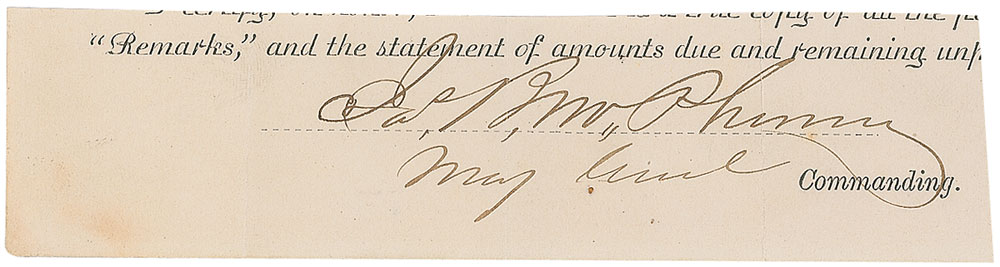 certify, true copy of all the
“Remarks,” and the statement of amounts due and remaining unp
Jas. B. McPherson
Maj Genl Commanding.